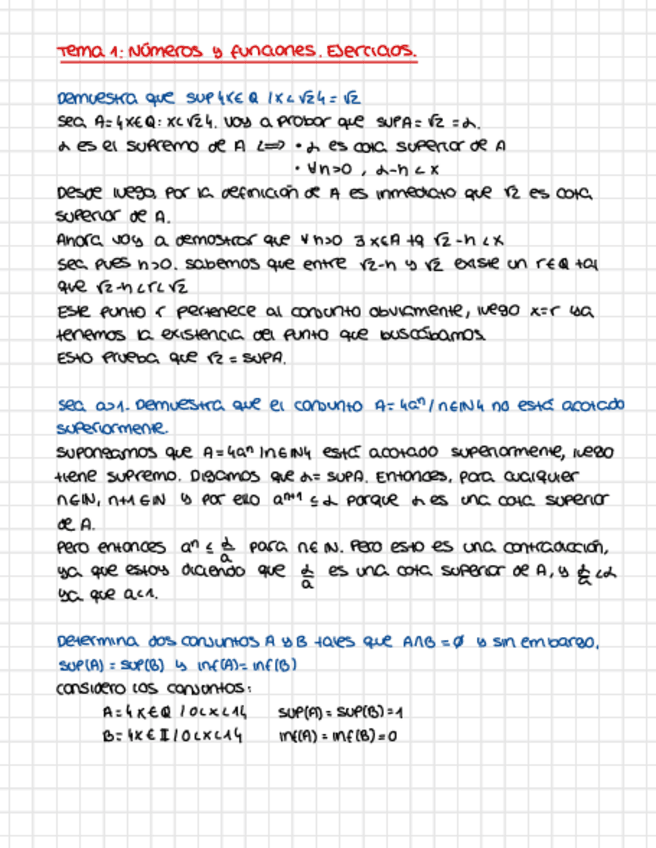 Tema 1: Números y funciones. Ejercicios.
Demuestra que sup{x∈Q / x<√2} = √2
Sea A={x∈Q: x<√2}. Voy a probar que supA=√2 = α.
α es el supremo de A ⟺ • α es cota superior de A
• ∀h>0, α-h<x
Desde luego, por la definición de A es inmediato que √2 es cota
superior de A.
Ahora voy a demostrar que ∀h>0 ∃x∈A tq √2-h<x
Sea pues h>0. Sabemos que entre √2-h y √2 existe un r∈Q tal
que √2-h<r<√2
Este punto r pertenece al conjunto obviamente, luego x=r ya
tenemos la existencia del punto que buscábamos.
Esto prueba que √2 = supA.
Sea a>1. Demuestra que el conjunto A={aⁿ/n∈N} no está acotado
superiormente.
Supongamos que A={aⁿ/n∈N} está acotado superiormente, luego
tiene supremo. Digamos que α= supA. Entonces, para cualquier
n∈N, n+1∈N y por ello aⁿ⁺¹ ≤ α porque α es una cota superior
de A.
Pero entonces aⁿ ≤ α/a para n∈N. Pero esto es una contradicción,
ya que estoy diciendo que α/a es una cota superior de A, y α/a <α
ya que a<1.
Determina dos conjuntos A y B tales que A∩B=∅ y sin embargo,
sup(A) = sup(B) y inf(A)= inf(B)
Considero los conjuntos:
A={x∈Q / 0<x<1} sup(A) = sup(B)=1
B={x∈I / 0<x<1} inf(A) = inf(B)=0